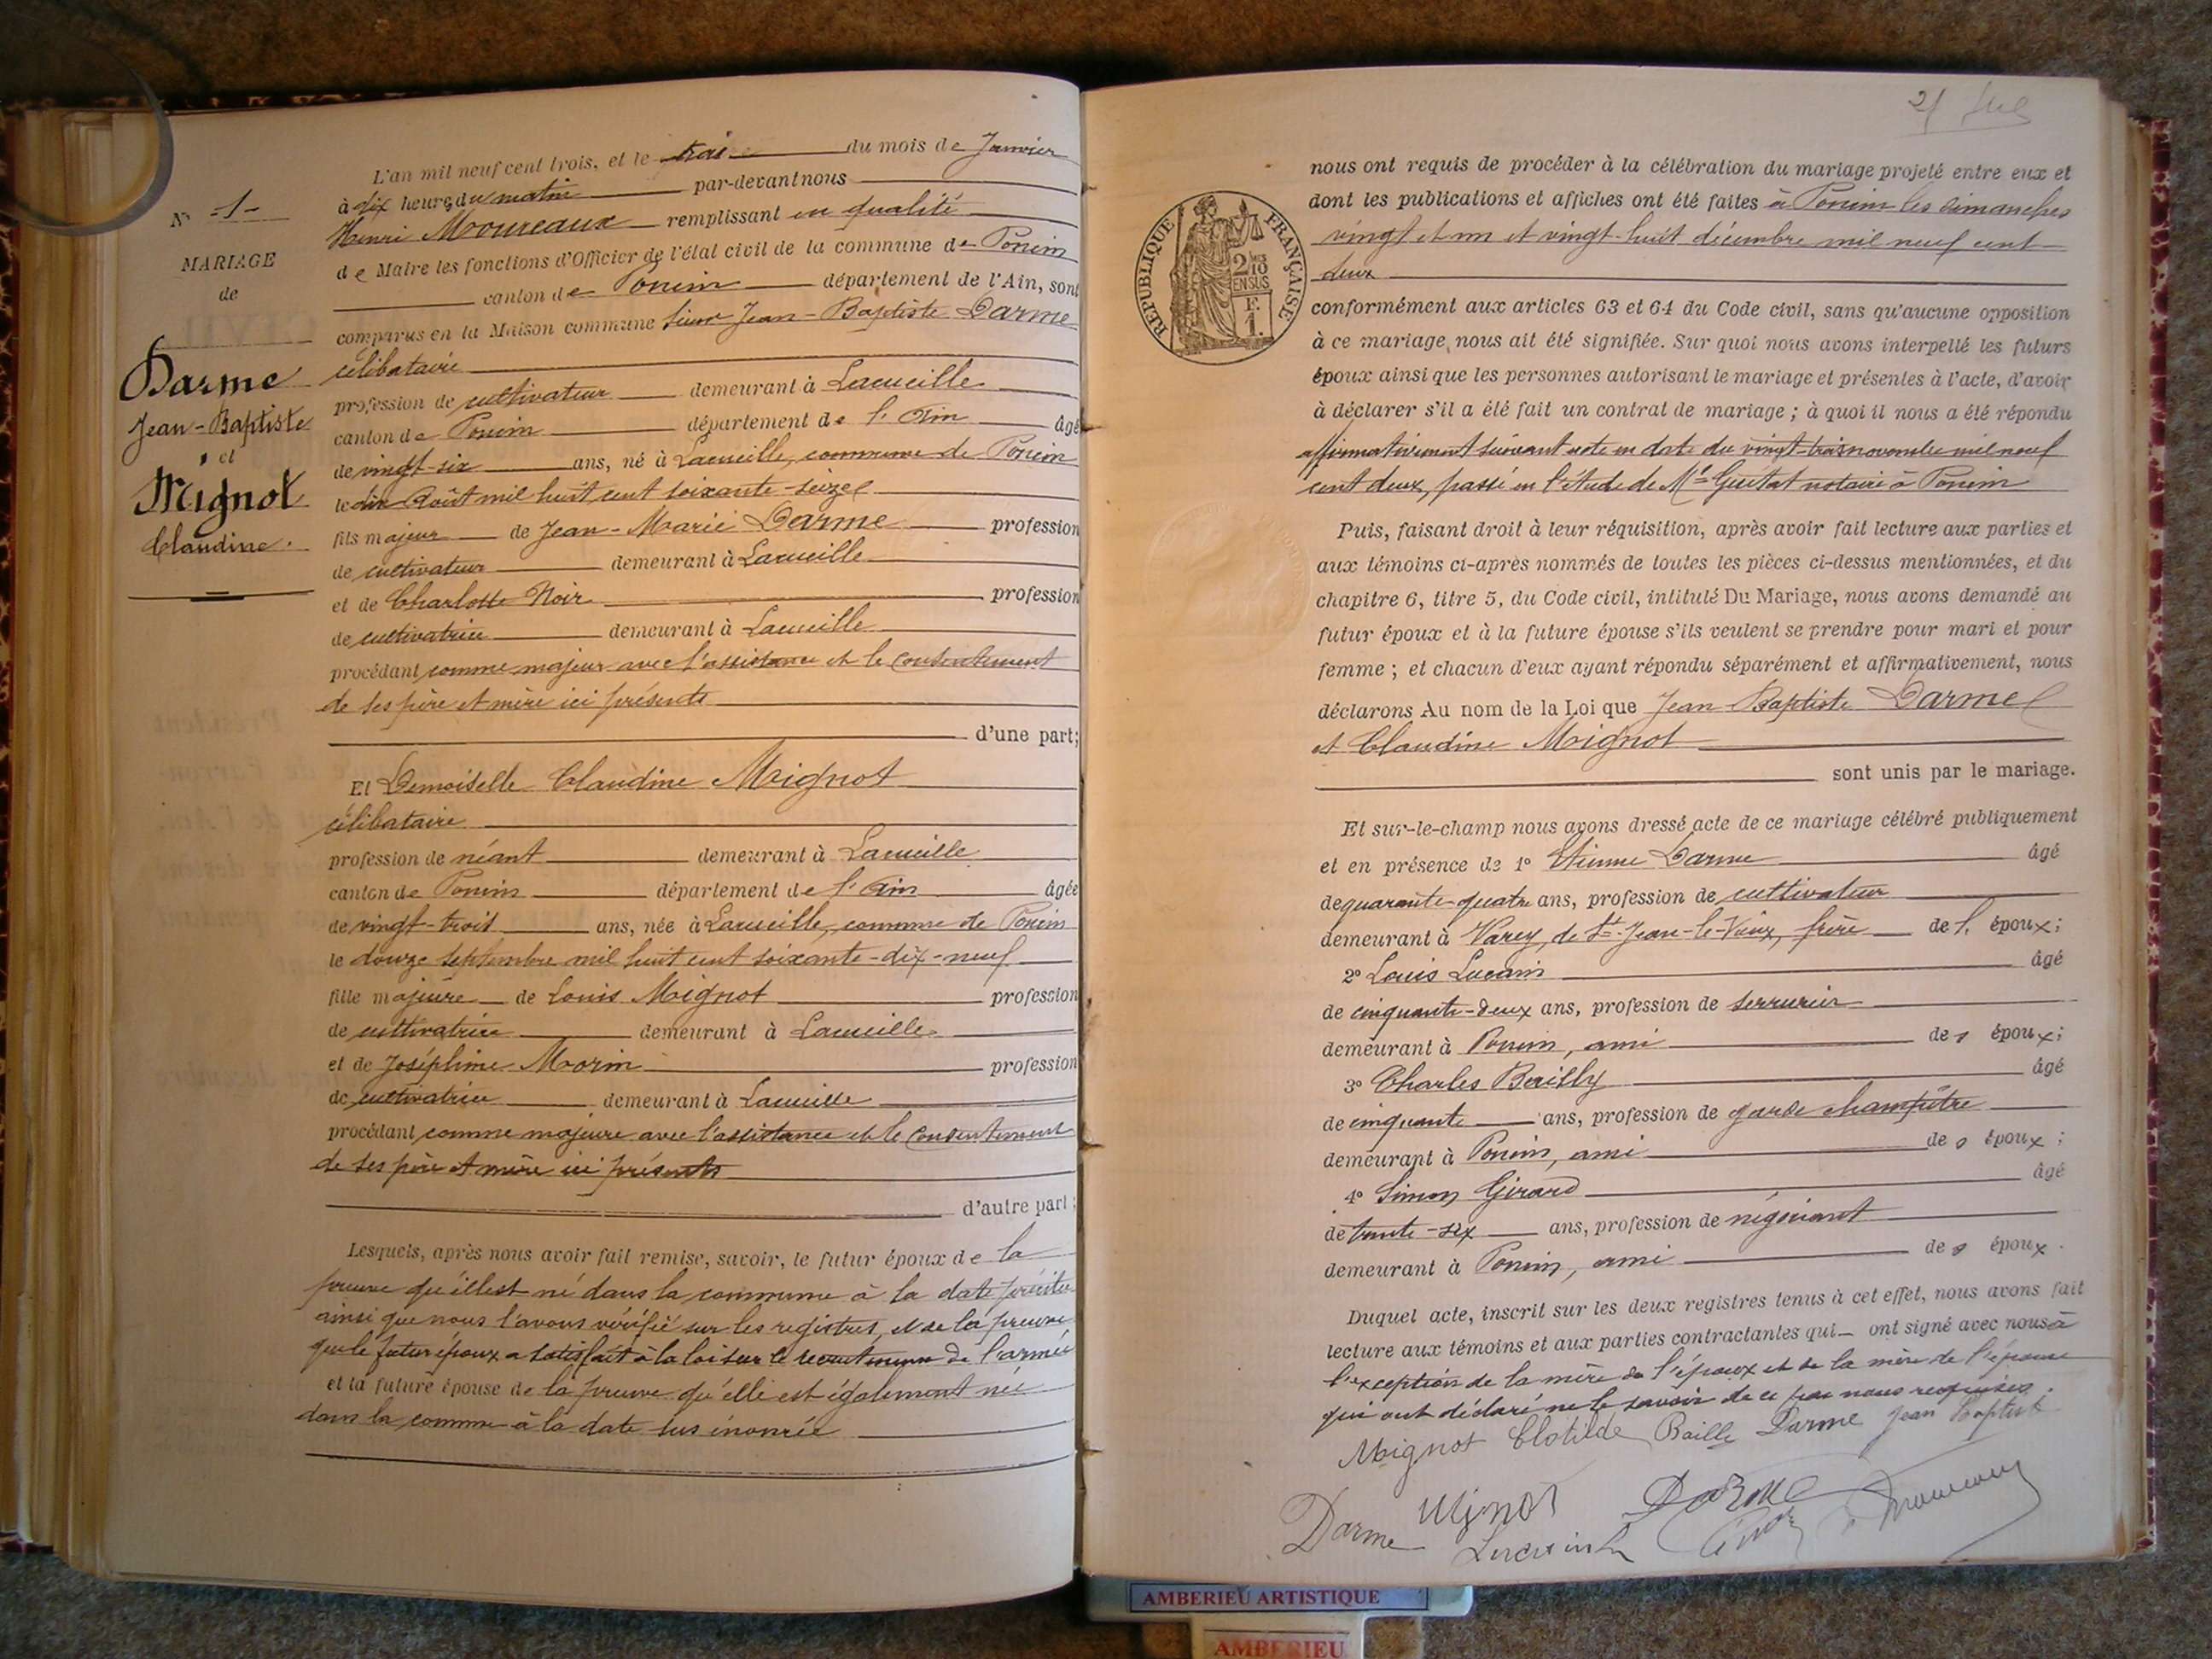 L'an mil neuf cent trois, et le trois du mois de Janvier
à dix heures du matin par-devant nous
Henri Moureaux remplissant en qualité
de Maire les fonctions d'Officier de l'état civil de la commune de Poncin
canton de Poncin département de l'Ain, sont
comparus en la Maison commune sieur Jean-Baptiste Darme
célibataire
profession de cultivateur demeurant à Lacueille
canton de Poncin département de l'Ain âgé
de vingt-six ans, né à Lacueille, commune de Poncin
le dix Août mil huit cent soixante-seize
fils majeur de Jean-Marie Darme profession
de cultivateur demeurant à Lacueille
et de Charlotte Noir profession
de cultivatrice demeurant à Lacueille
procédant comme majeur avec l'assistance et le consentement
de ses père et mère ici présents
d'une part;
Et Demoiselle Claudine Mignot
célibataire
profession de néant demeurant à Lacueille
canton de Poncin département de l'Ain âgée
de vingt-trois ans, née à Lacueille, commune de Poncin
le douze septembre mil huit cent soixante-dix-neuf
fille majeure de Louis Mignot profession
de cultivatrice demeurant à Lacueille
et de Joséphine Morin profession
de cultivatrice demeurant à Lacueille
procédant comme majeure avec l'assistance et le consentement
de ses père et mère ici présents
d'autre part;
Lesquels, après nous avoir fait remise, savoir, le futur époux de la
preuve qu'il est né dans la commune à la date précitée
ainsi que nous l'avons vérifié sur les registres, et de la preuve
que le futur époux a satisfait à la loi sur le recrutement de l'armée
et la future épouse de la preuve qu'elle est également née
dans la commune à la date sus énoncée
N° -1-
MARIAGE
de
Darme
Jean-Baptiste
et
Mignot
Claudine.
2
nous ont requis de procéder à la célébration du mariage projeté entre eux et
dont les publications et affiches ont été faites à Poncin les dimanches
vingt et un et vingt-huit décembre mil neuf cent
deux
conformément aux articles 63 et 64 du Code civil, sans qu'aucune opposition
à ce mariage nous ait été signifiée. Sur quoi nous avons interpellé les futurs
époux ainsi que les personnes autorisant le mariage et présentes à l'acte, d'avoir
à déclarer s'il a été fait un contrat de mariage; à quoi il nous a été répondu
affirmativement suivant acte en date du vingt-trois novembre mil neuf
cent deux, passé en l'étude de Me Guitat notaire à Poncin
Puis, faisant droit à leur réquisition, après avoir fait lecture aux parties et
aux témoins ci-après nommés de toutes les pièces ci-dessus mentionnées, et du
chapitre 6, titre 5, du Code civil, intitulé Du Mariage, nous avons demandé au
futur époux et à la future épouse s'ils veulent se prendre pour mari et pour
femme; et chacun d'eux ayant répondu séparément et affirmativement, nous
déclarons Au nom de la Loi que Jean Baptiste Darme
et Claudine Mignot
sont unis par le mariage.
Et sur-le-champ nous avons dressé acte de ce mariage célébré publiquement
et en présence de 1° Etienne Darme âgé
de quarante-quatre ans, profession de cultivateur
demeurant à Varey, de St-Jean-le-Vieux, frère de l' époux;
2° Louis Lucain âgé
de cinquante-deux ans, profession de serrurier
demeurant à Poncin, ami des époux;
3° Charles Bailly âgé
de cinquante ans, profession de garde champêtre
demeurant à Poncin, ami des époux;
4° Simon Girard âgé
de trente-six ans, profession de négociant
demeurant à Poncin, ami des époux.
Duquel acte, inscrit sur les deux registres tenus à cet effet, nous avons fait
lecture aux témoins et aux parties contractantes qui ont signé avec nous à
l'exception de la mère de l'époux et de la mère de l'épouse
qui ont déclaré ne le savoir de ce par nous requises.
Mignot Clotilde Bailly Darme Jean Baptiste
Darme Mignot Darme
RÉPUBLIQUE FRANÇAISE
2/10 EN SUS
F. 1.
AMBERIEU ARTISTIQUE
AMBERIEU